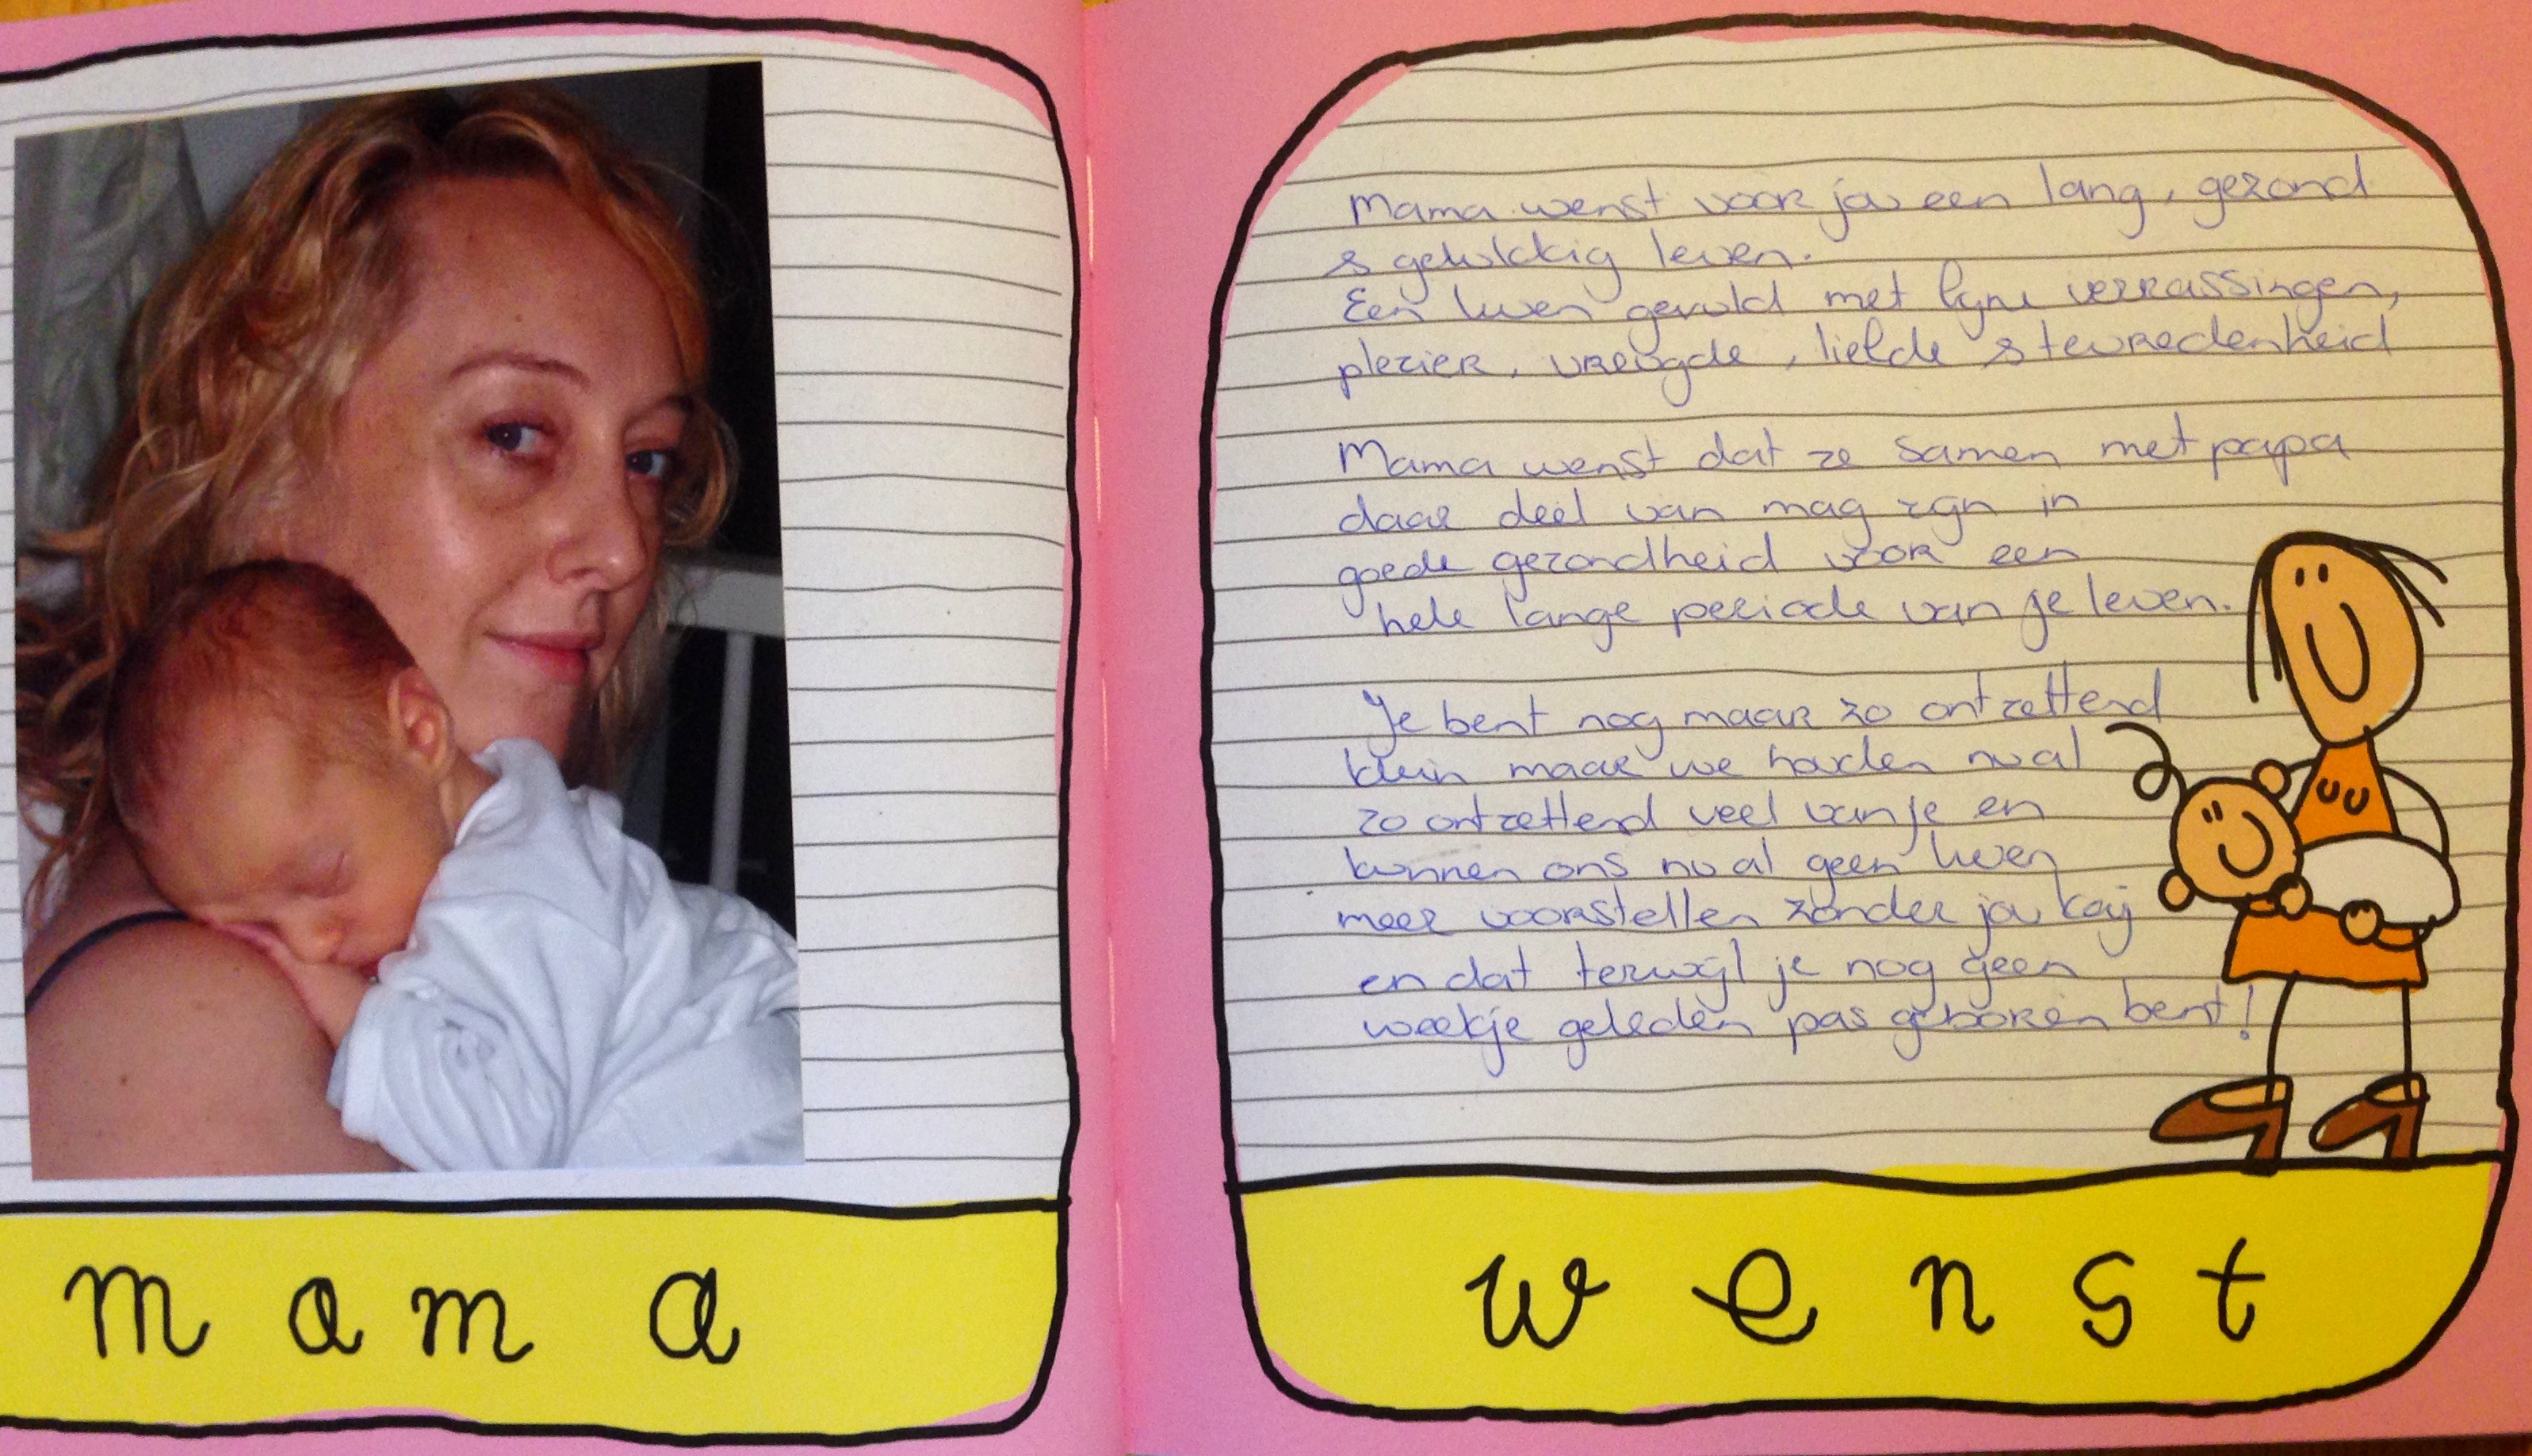 mama
Mama wenst voor jou een lang, gezond
& gelukkig leven.
Een leven gevuld met fijne verrassingen,
plezier, vreugde, liefde & tevredenheid
Mama wenst dat ze samen met papa
daar deel van mag zijn in
goede gezondheid voor een
hele lange periode van je leven.
Je bent nog maar zo ontzettend
klein maar we houden nu al
zo ontzettend veel van je en
kunnen ons nu al geen leven
meer voorstellen zonder jou
en dat terwijl je nog geen
weekje geleden pas geboren bent!
wenst